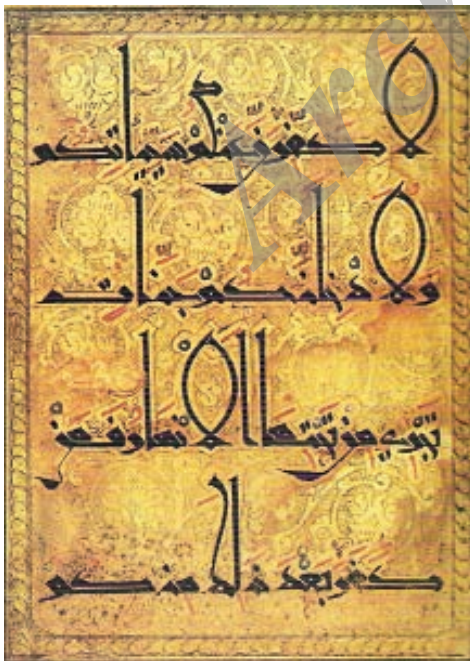 لَأُكَفِّرَنَّ عَنْكُمْ سَيِّئَاتِكُمْ
وَلَأُدْخِلَنَّكُمْ جَنَّاتٍ
تَجْرِي مِنْ تَحْتِهَا الْأَنْهَارُ فَمَنْ
كَفَرَ بَعْدَ ذَلِكَ مِنْكُمْ
Arc